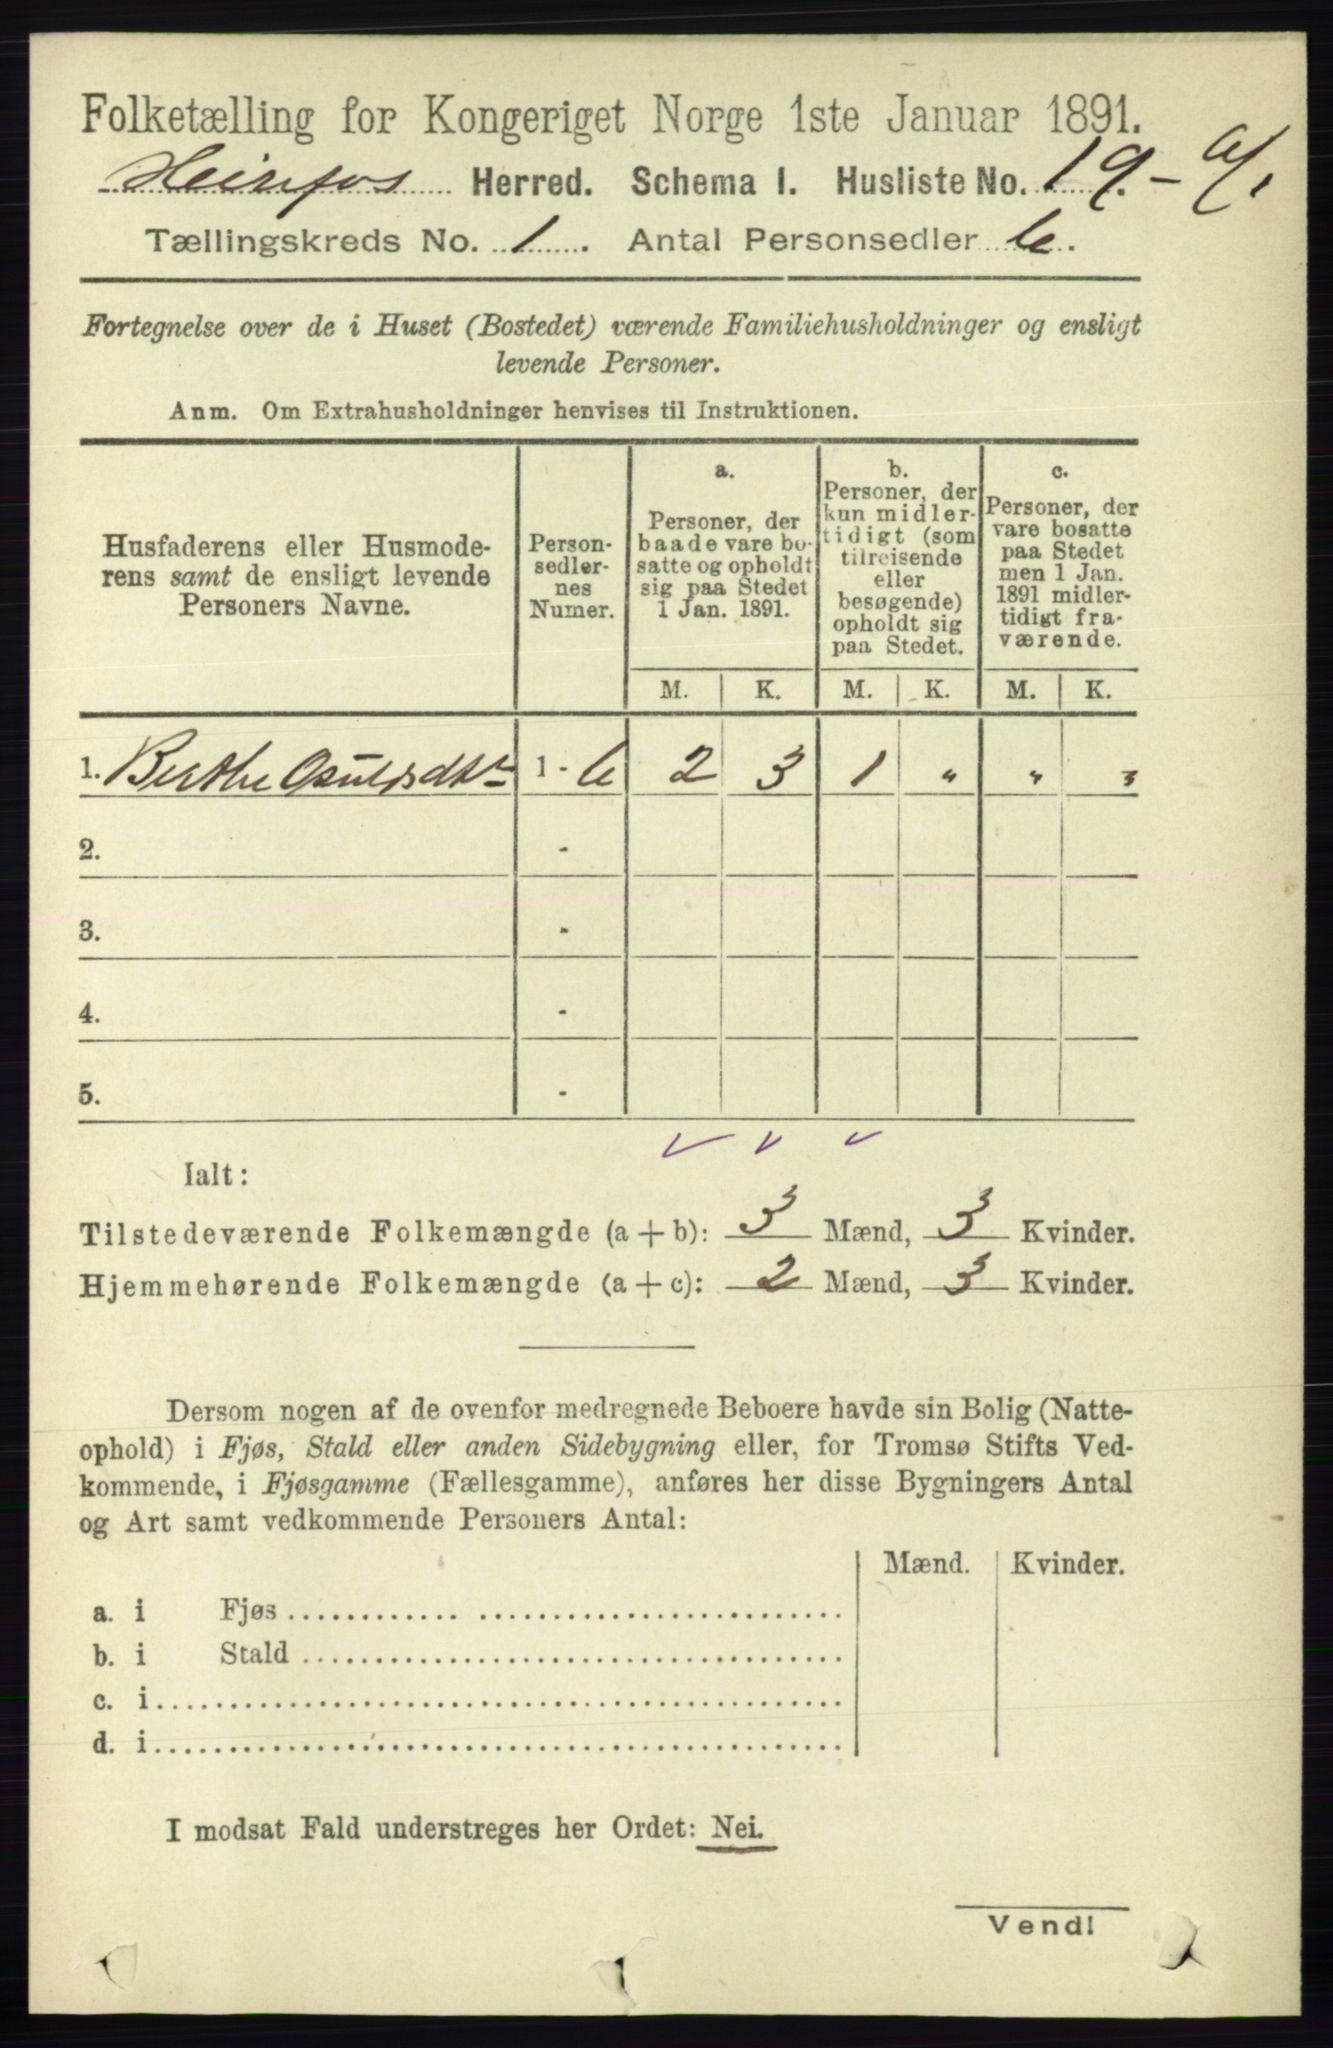 Folketælling for Kongeriget Norge 1ste Januar 1891.
Herred. Schema I. Husliste No. 19.
Tællingskreds No. 1. Antal Personsedler 6.
Fortegnelse over de i Huset (Bostedet) værende Familiehusholdninger og ensligt
levende Personer.
Anm. Om Extrahusholdninger henvises til Instruktionen.
Husfaderens eller Husmode-
rens samt de ensligt levende
Personers Navne.
Person-
sedler-
nes
Numer.
a.
Personer, der
baade vare bo-
satte og opholdt
sig paa Stedet
1 Jan. 1891.
b.
Personer, der
kun midler-
tidigt (som
tilreisende
eller
besøgende)
opholdt sig
paa Stedet.
c.
Personer, der
vare bosatte
paa Stedet
men 1 Jan.
1891 midler-
tidigt fra-
værende.
M. K. M. K. M. K.
1. Berthe 1 - 6 2 3 1 " " "
2. -
3. -
4. -
5. -
Ialt:
Tilstedeværende Folkemængde (a + b): 3 Mænd, 3 Kvinder.
Hjemmehørende Folkemængde (a + c): 2 Mænd, 3 Kvinder.
Dersom nogen af de ovenfor medregnede Beboere havde sin Bolig (Natte-
ophold) i Fjøs, Stald eller anden Sidebygning eller, for Tromsø Stifts Ved-
kommende, i Fjøsgamme (Fællesgamme), anføres her disse Bygningers Antal
og Art samt vedkommende Personers Antal:
Mænd. Kvinder.
a. i Fjøs
b. i Stald
c. i
d. i
I modsat Fald understreges her Ordet: Nei.
Vend!